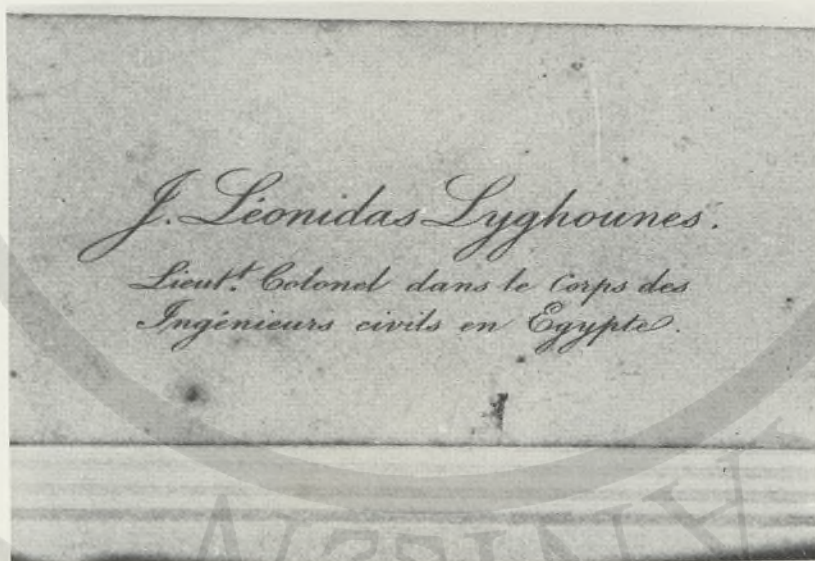 J. Léonidas Lyghounes.
Lieut.t Colonel dans le Corps des
Ingénieurs civils en Egypte.